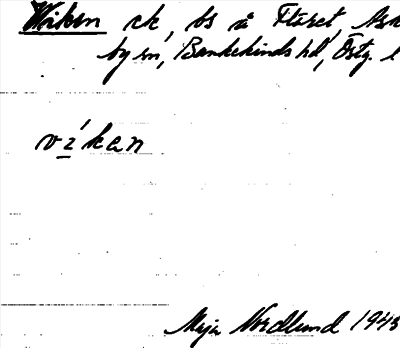 Wiken ck, bs å Fläret, Ask
by sn, Bankekinds hd, Östg. l
víken
Maja Nordlund 1943